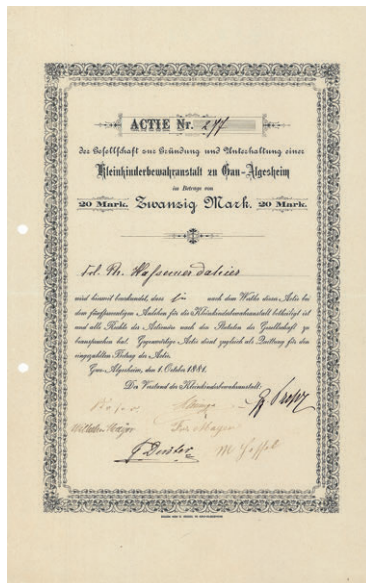 ACTIE Nr. 277
der Gesellschaft zur Gründung und Unterhaltung einer
Kleinkinderbewahranstalt zu Gau-Algesheim
im Betrage von
20 Mark. Zwanzig Mark. 20 Mark.
wird hiermit beurkundet, dass sie nach dem Werthe dieser Actie bei
dem fünfprozentigen Anlehen für die Kleinkinderbewahranstalt betheiligt ist
und alle Rechte der Actionäre nach den Statuten der Gesellschaft zu
beanspruchen hat. Gegenwärtige Actie dient zugleich als Quittung für den
eingezahlten Betrag der Actie.
Gau-Algesheim, den 1. October 1881.
Der Vorstand der Kleinkinderbewahranstalt: